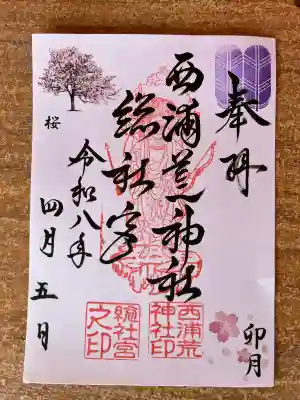 奉拝
西浦荒神社
総社宮
令和八年
四月五日
桜
卯月
西浦荒
神社印
總社宮
之印